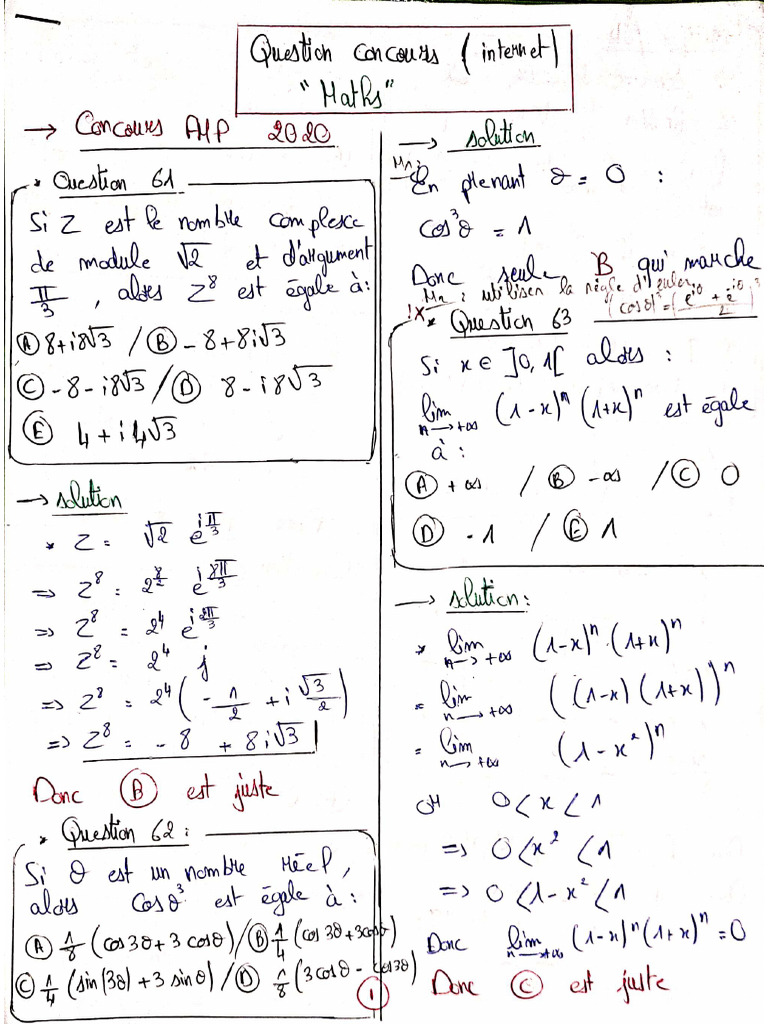 Question Concours (internet)
"Maths"
→ Concours AMP 2020
* Question 61
Si Z est le nombre complexe
de module √2 et d'argument
π/3, alors Z⁸ est égale à:
Ⓐ 8+i8√3 / Ⓑ -8+8i√3
Ⓒ -8-i8√3 / Ⓓ 8-i8√3
Ⓔ 4+i4√3
→ solution
* Z = √2 e^(iπ/3)
⇒ Z⁸ = 2^(8/2) e^(i8π/3)
⇒ Z⁸ = 2⁴ e^(i2π/3)
⇒ Z⁸ = 2⁴ j
⇒ Z⁸ = 2⁴(-1/2 + i√3/2)
⇒ Z⁸ = -8 + 8i√3
Donc Ⓑ est juste
* Question 62:
Si θ est un nombre réel,
alors Cosθ³ est égale à:
Ⓐ 1/8 (cos3θ+3cosθ) / Ⓑ 1/4 (cos3θ+3cosθ)
Ⓒ 1/4 (sin(3θ)+3sinθ) / Ⓓ 1/8 (3cosθ - cos3θ)
①
→ solution
M1:
En prenant θ = 0 :
cos³θ = 1
Donc seule B qui marche
M2: utiliser la règle d'euler
"(cosθ)³=((e^(iθ) + e^(iθ))/2)³
!X
* Question 63
Si x ∈ ]0,1[ alors :
lim n→+∞ (1-x)ⁿ (1+x)ⁿ est égale
à:
Ⓐ +∞ / Ⓑ -∞ / Ⓒ 0
Ⓓ -1 / Ⓔ 1
→ solution:
* lim n→+∞ (1-x)ⁿ.(1+x)ⁿ
= lim n→+∞ ((1-x)(1+x))ⁿ
= lim n→+∞ (1-x²)ⁿ
or 0<x<1
⇒ 0<x²<1
⇒ 0<1-x²<1
Donc lim n→+∞ (1-x)ⁿ(1+x)ⁿ=0
Donc Ⓒ est juste